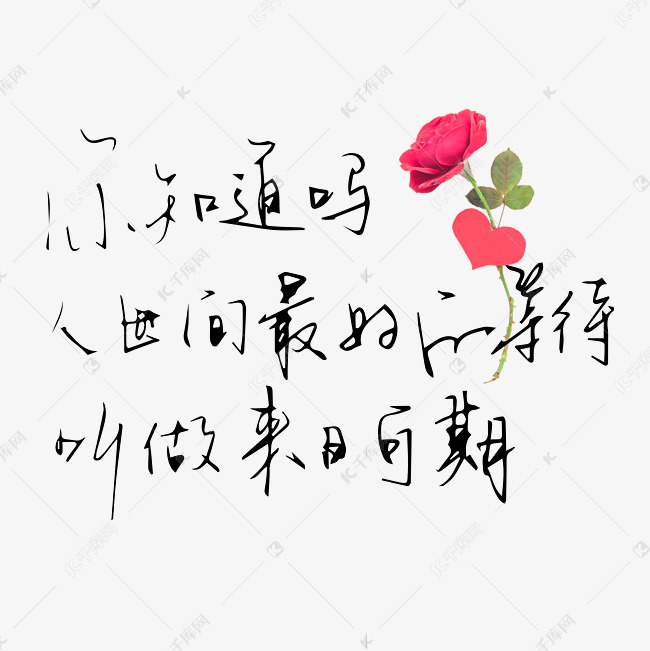 你知道吗
人世间最好的等待
叫做来日可期